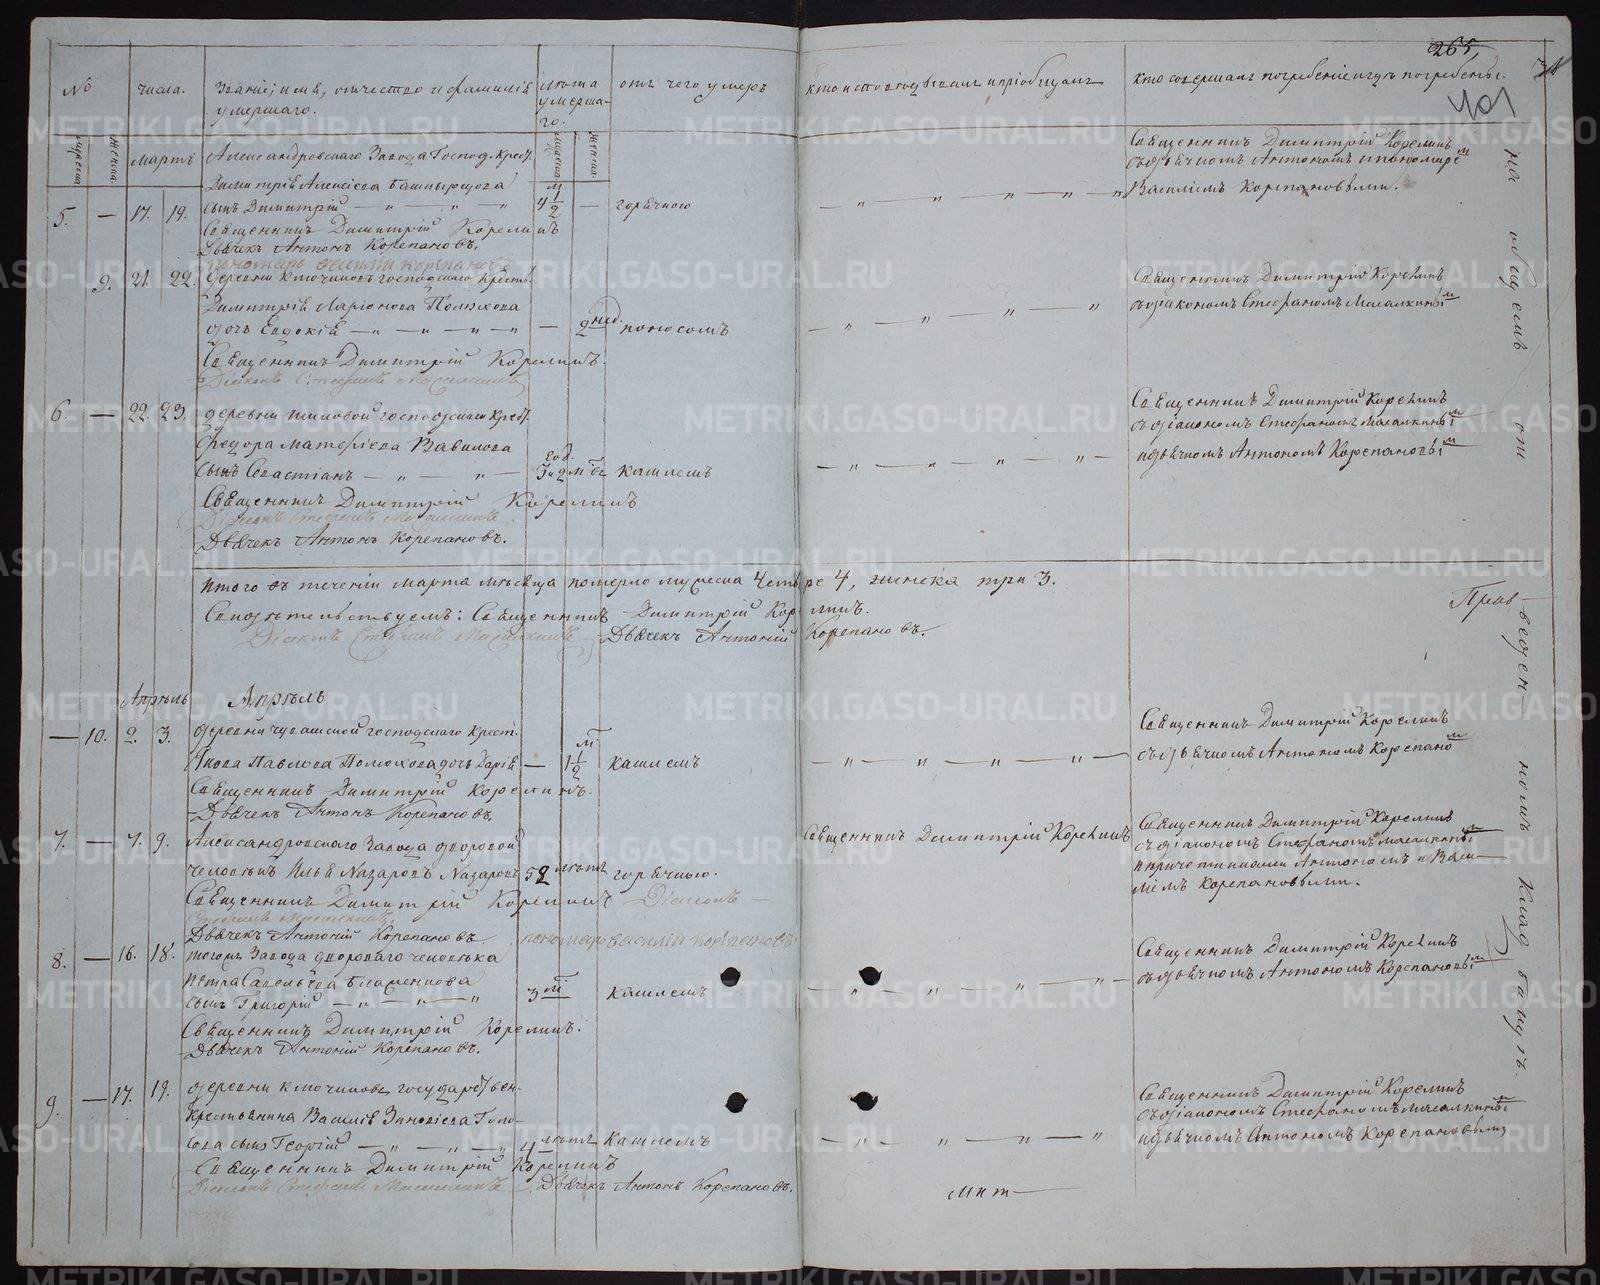 265.
401
№
числа.
Званіе, имя, отчество и фамилія
умершаго.
лѣта
умерша-
го.
отъ чего умеръ
кто исповѣдывалъ и пріобщалъ
кто совершалъ погребеніе и гдѣ погребены.
мужска
женска.
мужска
женска.
Мартъ
Александровскаго Завода Господ. Крест.
Димитрія Алексіева Башкырцова
5. — 17. 19.
сынъ Димитрій — " — " — "
м 4 1/2 —
горячкою
Священникъ Димитрій Корелинъ
Дьячекъ Антонъ Корепановъ.
пономарь Василій Корепановъ
Священникъ Димитрій Корелинъ
съ дьячкомъ Антономъ и пономаремъ
Василіемъ Корепановыми.
9. 21. 22.
деревни Ключиковъ господскаго Крест.
Димитрія Ларіонова Полюхова
дочь Евдокія — " — " — " — "
— 2 нед.
поносомъ
Священникъ Димитрій Корелинъ.
Діаконъ Стефанъ Масалкинъ
Священникъ Димитрій Корелинъ
съ діакономъ Стефаномъ Масалкинымъ
6. — 22. 23.
деревни шиловой господскаго Крест.
Федора Матфіева Вавилова
сынъ Севастіанъ — " — " —
год.
кашлемъ
Священникъ Димитрій Корелинъ
Діаконъ Стефанъ Масалкинъ
Дьячекъ Антонъ Корепановъ.
Священникъ Димитрій Корелинъ
съ діакономъ Стефаномъ Масалкинымъ
и дьячкомъ Антономъ Корепановымъ
Итого въ теченіи марта мѣсяца померло мужска четыре 4, женска три 3.
Свидѣтельствуемъ: Священникъ Димитрій Корелинъ.
Діаконъ Стефанъ Масалкинъ Дьячекъ Антоній Корепановъ.
Апрѣль Апрѣль
— 10. 2. 3.
деревни чувашской господскаго Крест.
Якова Павлова Полюхова дочь Дарія —
м. 1 1/2
кашлемъ
Священникъ Димитрій Корелинъ.
Дьячекъ Антонъ Корепановъ
Священникъ Димитрій Корелинъ
съ дьячкомъ Антономъ Корепановым
7. — 7. 9.
Александровскаго Завода дворовой
человѣкъ Илья Назаровъ Назаровъ
52 лѣтъ
горячкою.
Священникъ Димитрій Корелинъ Діаконъ —
Стефанъ Масалкинъ,
Дьячекъ Антоній Корепановъ пономарь Василій Корепановъ
Священникъ Димитрій Корелинъ
Священникъ Димитрій Корелинъ
съ діакономъ Стефаномъ Масалкинымъ
и причетниками Антономъ и Васи—
ліемъ Корепановыми.
8. — 16. 18.
тогожъ Завода двороваго человѣка
Петра Савельева
сынъ Григорій — " — " — "
3
кашлемъ
Священникъ Димитрій Корелинъ.
Дьячекъ Антоній Корепановъ.
Священникъ Димитрій Корелинъ
съ дьячкомъ Антономъ Корепановымъ
9. — 17. 19.
деревни Ключиковъ государствен-
Крестьянина Василія Зиновіева Гупо-
сынъ Георгій — " — " — "
4 лѣтъ
кашлемъ
Священникъ Димитрій Корелинъ
Діаконъ Стефанъ Масалкинъ Дьячекъ Антонъ Корепановъ.
Священникъ Димитрій Корелинъ
съ діакономъ Стефаномъ Масалкинымъ
и дьячкомъ Антономъ Корепановымъ
на общемъ от
Прав—
веденномъ кладбищѣ.
METRIKI.GASO-URAL.RU